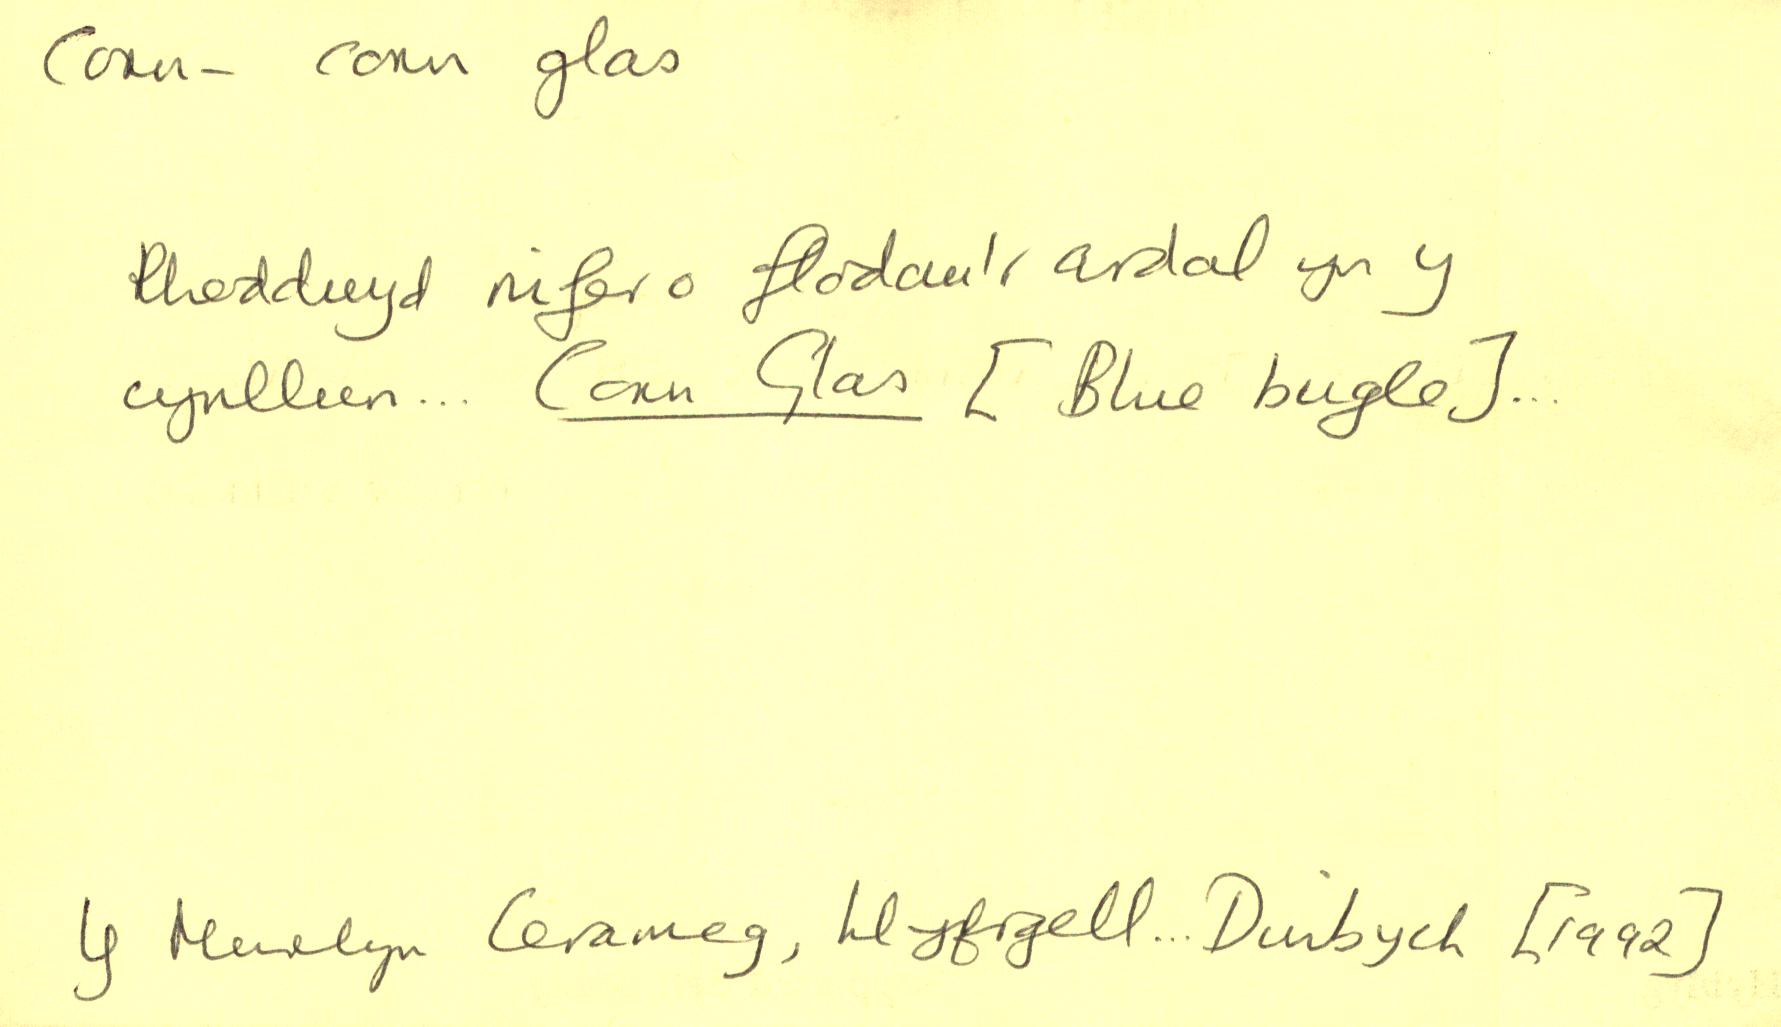 Corn - corn glas
Rhoddwyd nifer o flodau'r ardal yn y
cynllun... Corn Glas [Blue bugle]...
Y Murlyn Cerameg, Llyfrgell... Dinbych [1992]